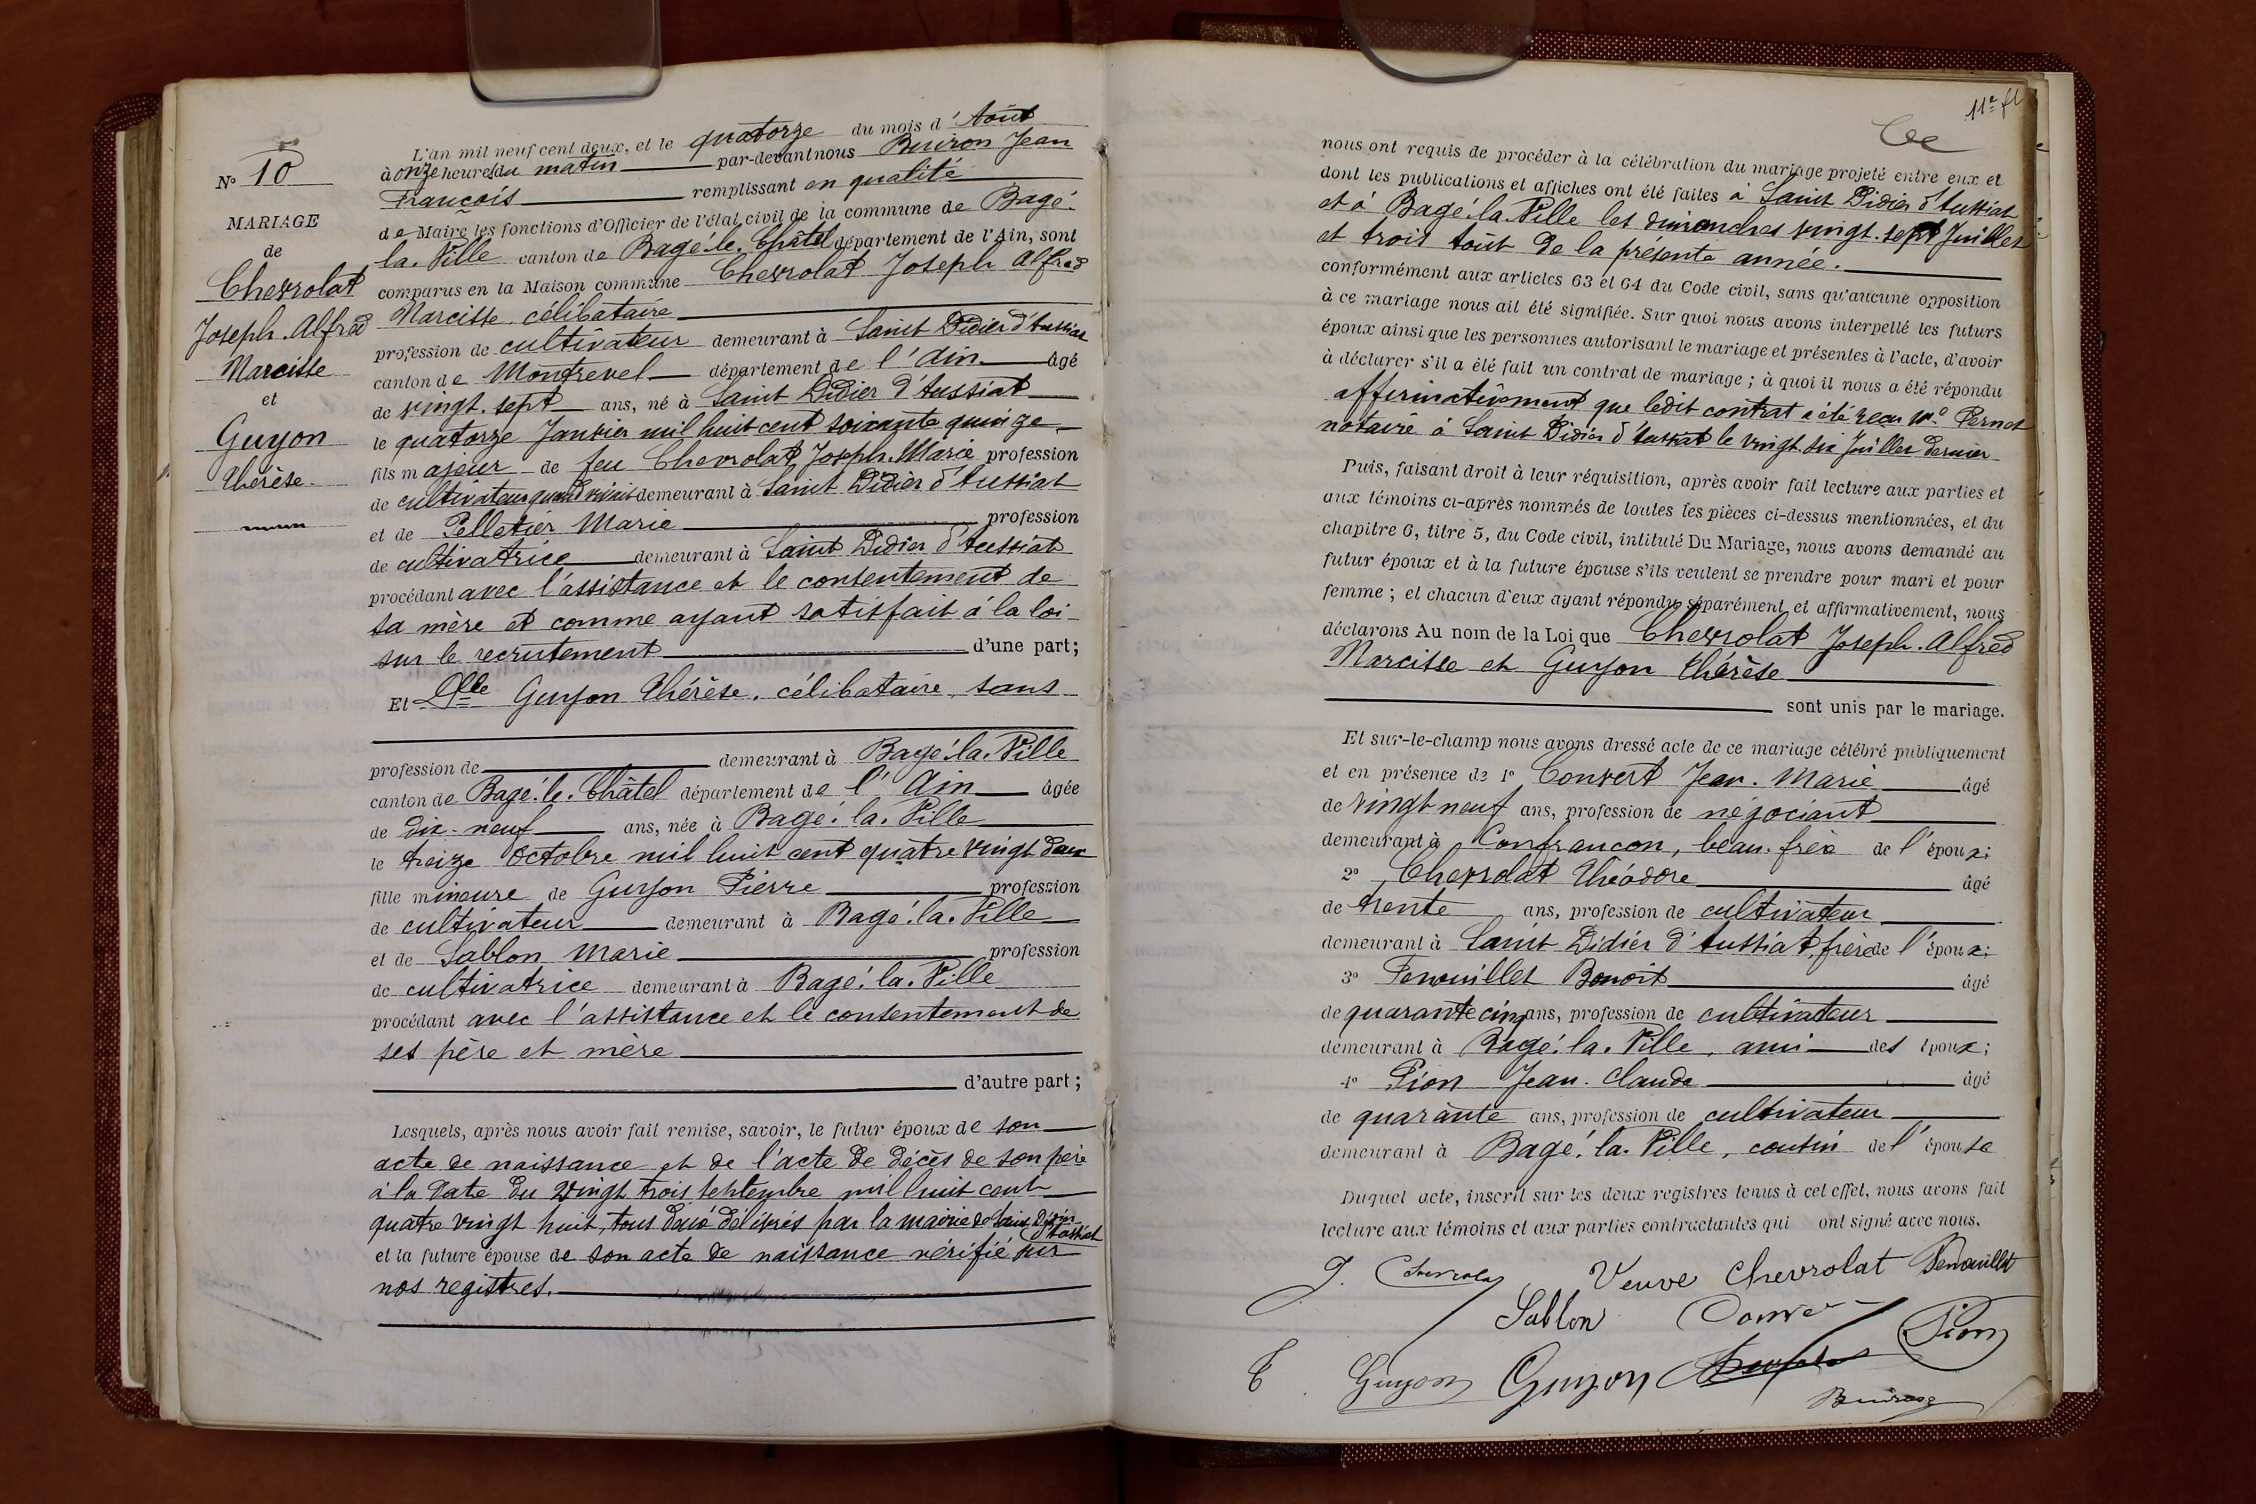 N° 10
MARIAGE
de
Chevrolat
Joseph. Alfred
Narcisse
et
Guyon
Thérèse.
L'an mil neuf cent deux, et le quatorze du mois d'Août
à onze heures du matin par-devant nous Buiron Jean
François remplissant en qualité
de Maire les fonctions d'Officier de l'état civil de la commune de Bagé.
la. Ville canton de Bagé. le. Châtel département de l'Ain, sont
comparus en la Maison commune Chevrolat Joseph Alfred
Narcisse. célibataire
profession de cultivateur demeurant à Saint Didier d'Aussiat
canton de Montrevel département de l'Ain âgé
de vingt. sept ans, né à Saint Didier d'Aussiat
le quatorze Janvier mil huit cent soixante quinze
fils majeur de feu Chevrolat Joseph. Marie profession
de cultivateur quand vivait demeurant à Saint Didier d'Aussiat
et de Pelletier Marie profession
de cultivatrice demeurant à Saint Didier d'Aussiat
procédant avec l'assistance et le consentement de
sa mère et comme ayant satisfait à la loi
sur le recrutement d'une part;
Et Dlle Guyon Thérèse. célibataire, sans
profession de demeurant à Bagé. la. Ville
canton de Bagé. le. Châtel département de l'Ain âgée
de dix-neuf ans, née à Bagé. la. Ville
le treize Octobre mil huit cent quatre vingt deux
fille mineure de Guyon Pierre profession
de cultivateur demeurant à Bagé. la. Ville
et de Sablon Marie profession
de cultivatrice demeurant à Bagé. la. Ville
procédant avec l'assistance et le consentement de
ses père et mère
d'autre part;
Lesquels, après nous avoir fait remise, savoir, le futur époux de son
acte de naissance et de l'acte de décès de son père
à la date du vingt trois septembre mil huit cent
quatre vingt huit, tous deux délivrés par la mairie de Saint Didier
d'Aussiat
et la future épouse de son acte de naissance vérifié sur
nos registres.
11e ft
nous ont requis de procéder à la célébration du mariage projeté entre eux et
dont les publications et affiches ont été faites à Saint Didier d'Aussiat
et à Bagé. la. Ville les dimanches vingt. sept Juillet
et trois Août de la présente année.
conformément aux articles 63 et 64 du Code civil, sans qu'aucune opposition
à ce mariage nous ait été signifiée. Sur quoi nous avons interpellé les futurs
époux ainsi que les personnes autorisant le mariage et présentes à l'acte, d'avoir
à déclarer s'il a été fait un contrat de mariage; à quoi il nous a été répondu
affirmativement que ledit contrat a été reçu Me Pernet
notaire à Saint Didier d'Aussiat le vingt. six Juillet dernier
Puis, faisant droit à leur réquisition, après avoir fait lecture aux parties et
aux témoins ci-après nommés de toutes les pièces ci-dessus mentionnées, et du
chapitre 6, titre 5, du Code civil, intitulé Du Mariage, nous avons demandé au
futur époux et à la future épouse s'ils veulent se prendre pour mari et pour
femme; et chacun d'eux ayant répondu séparément et affirmativement, nous
déclarons Au nom de la Loi que Chevrolat Joseph. Alfred
Narcisse et Guyon Thérèse
sont unis par le mariage.
Et sur-le-champ nous avons dressé acte de ce mariage célébré publiquement
et en présence de 1° Convert Jean. Marie âgé
de vingt neuf ans, profession de négociant
demeurant à Confrançon, beau. frère de l'époux;
2° Chevrolat Théodore âgé
de trente ans, profession de cultivateur
demeurant à Saint Didier d'Aussiat, frère de l'époux;
3° Fenouillet Benoit âgé
de quarante cinq ans, profession de cultivateur
demeurant à Bagé. la. Ville, ami des époux;
4° Pion Jean. Claude âgé
de quarante ans, profession de cultivateur
demeurant à Bagé. la. Ville, cousin de l'épouse
Duquel acte, inscrit sur les deux registres tenus à cet effet, nous avons fait
lecture aux témoins et aux parties contractantes qui ont signé avec nous.
J. Chevrolat Veuve Chevrolat Fenouillet
Sablon Convert Pion
T. Guyon Guyon Chevrolat
Buiron